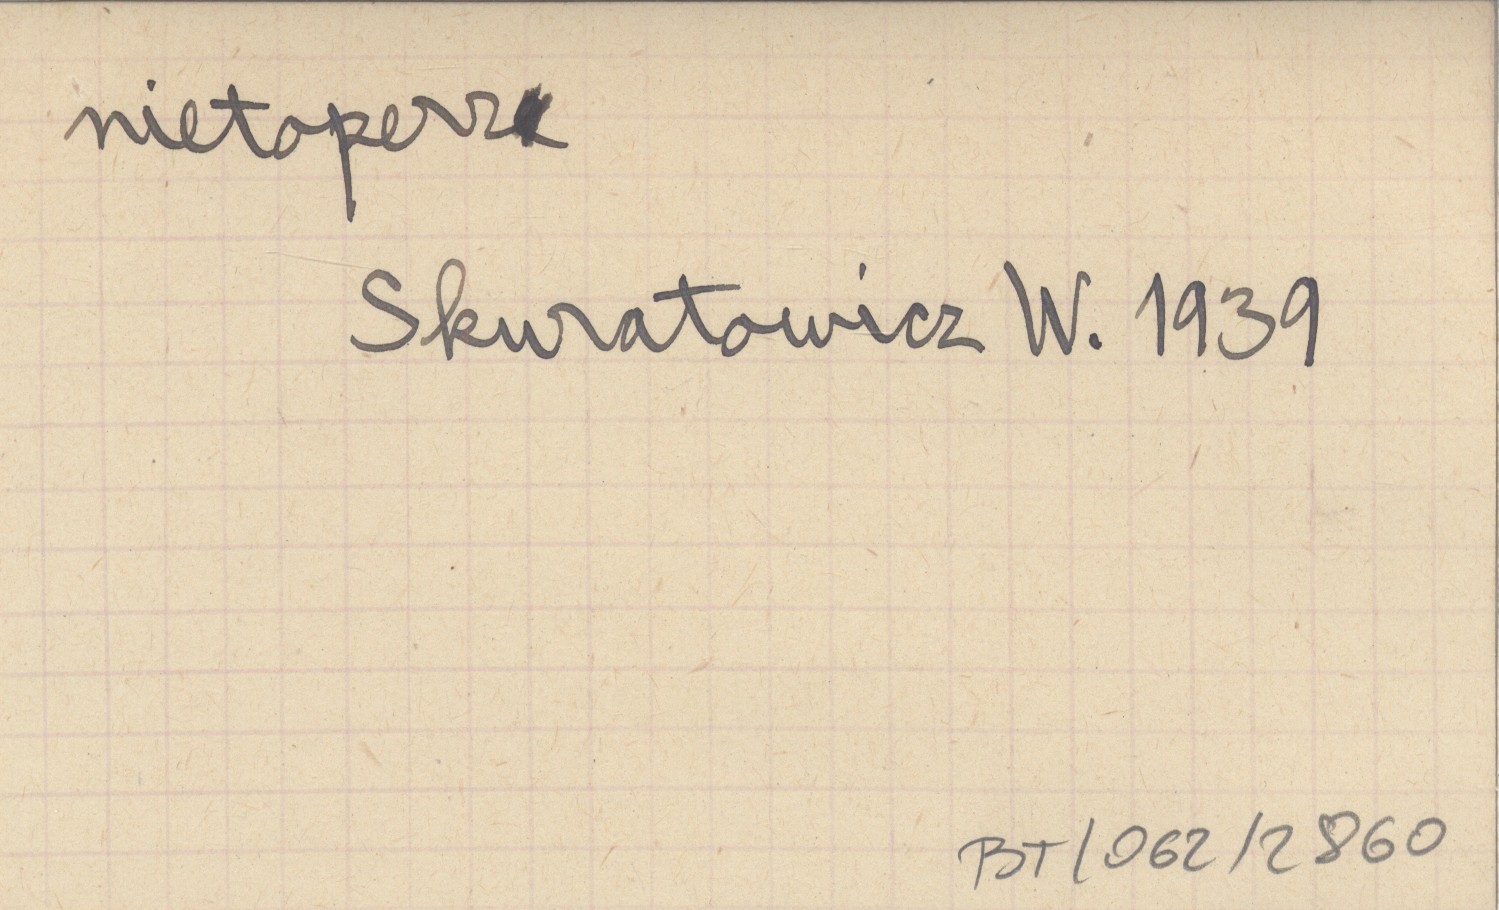 nietoperz
Skuratowicz W. 1939
BT/062/2860